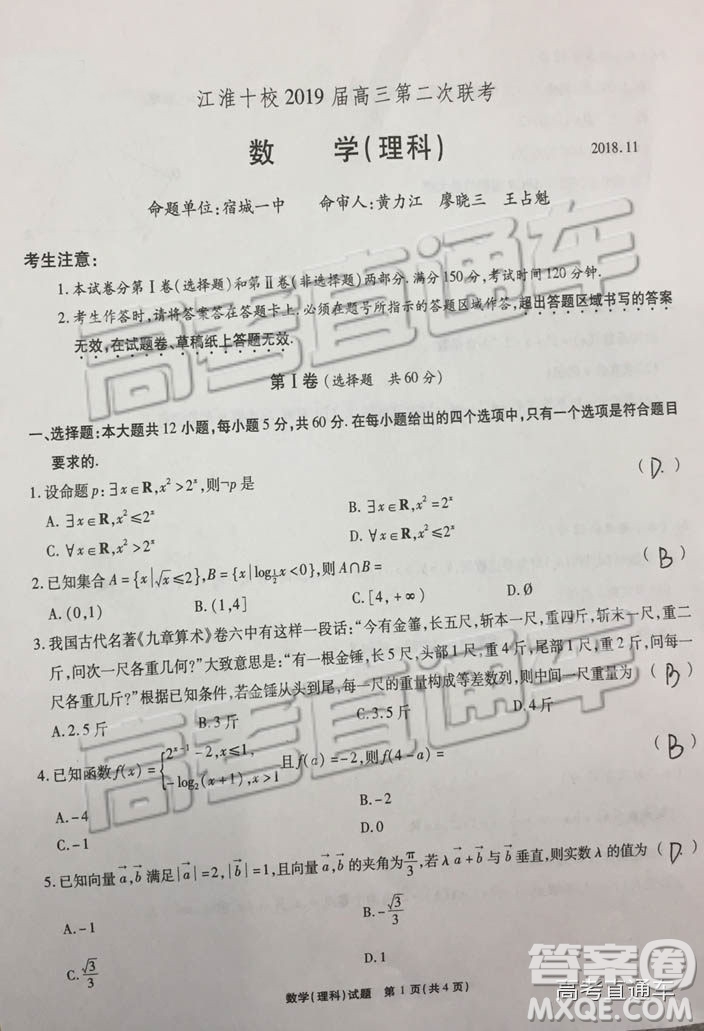 江淮十校2019届高三第二次联考
数 学(理科)
2018.11
命题单位:宿城一中 命审人:黄力江 廖晓三 王占魁
考生注意:
1.本试卷分第Ⅰ卷(选择题)和第Ⅱ卷(非选择题)两部分.满分150分,考试时间120分钟.
2.考生作答时,请将答案答在答题卡上.必须在题号所指示的答题区域作答,超出答题区域书写的答案
无效,在试题卷、草稿纸上答题无效.
第Ⅰ卷(选择题 共60分)
一、选择题:本大题共12小题,每小题5分,共60分.在每小题给出的四个选项中,只有一个选项是符合题目
要求的.
1.设命题p:∃x∈R,x²>2ˣ,则¬p是 (D.)
A.∃x∈R,x²≤2ˣ B.∃x∈R,x²=2ˣ
C.∀x∈R,x²>2ˣ D.∀x∈R,x²≤2ˣ
2.已知集合A={x|√x≤2},B={x|log½x<0},则A∩B= (B)
A.(0,1) B.(1,4] C.[4,+∞) D.∅
3.我国古代名著《九章算术》卷六中有这样一段话:“今有金箠,长五尺,斩本一尺,重四斤,斩末一尺,重二
斤,问次一尺各重几何?”大致意思是:“有一根金锤,长5尺,头部1尺,重4斤,尾部1尺,重2斤,问每一
尺各重几斤?”根据已知条件,若金锤从头到尾,每一尺的重量构成等差数列,则中间一尺重量为 (B)
A.2.5斤 B.3斤 C.3.5斤 D.4斤
4.已知函数f(x)={2ˣ⁻¹-2,x≤1, -log₂(x+1),x>1 且f(a)=-2,则f(4-a)= (B)
A.-4 B.-2
C.-1 D.0
5.已知向量a⃗,b⃗满足|a⃗|=2,|b⃗|=1,且向量a⃗,b⃗的夹角为π/3,若λa⃗+b⃗与b⃗垂直,则实数λ的值为 (D.)
A.-1 B.-√3/3
C.√3/3 D.1
数学(理科)试题 第1页(共4页)
高考直通车
高考直通车
答案圈
高考直通车
MXQE.COM